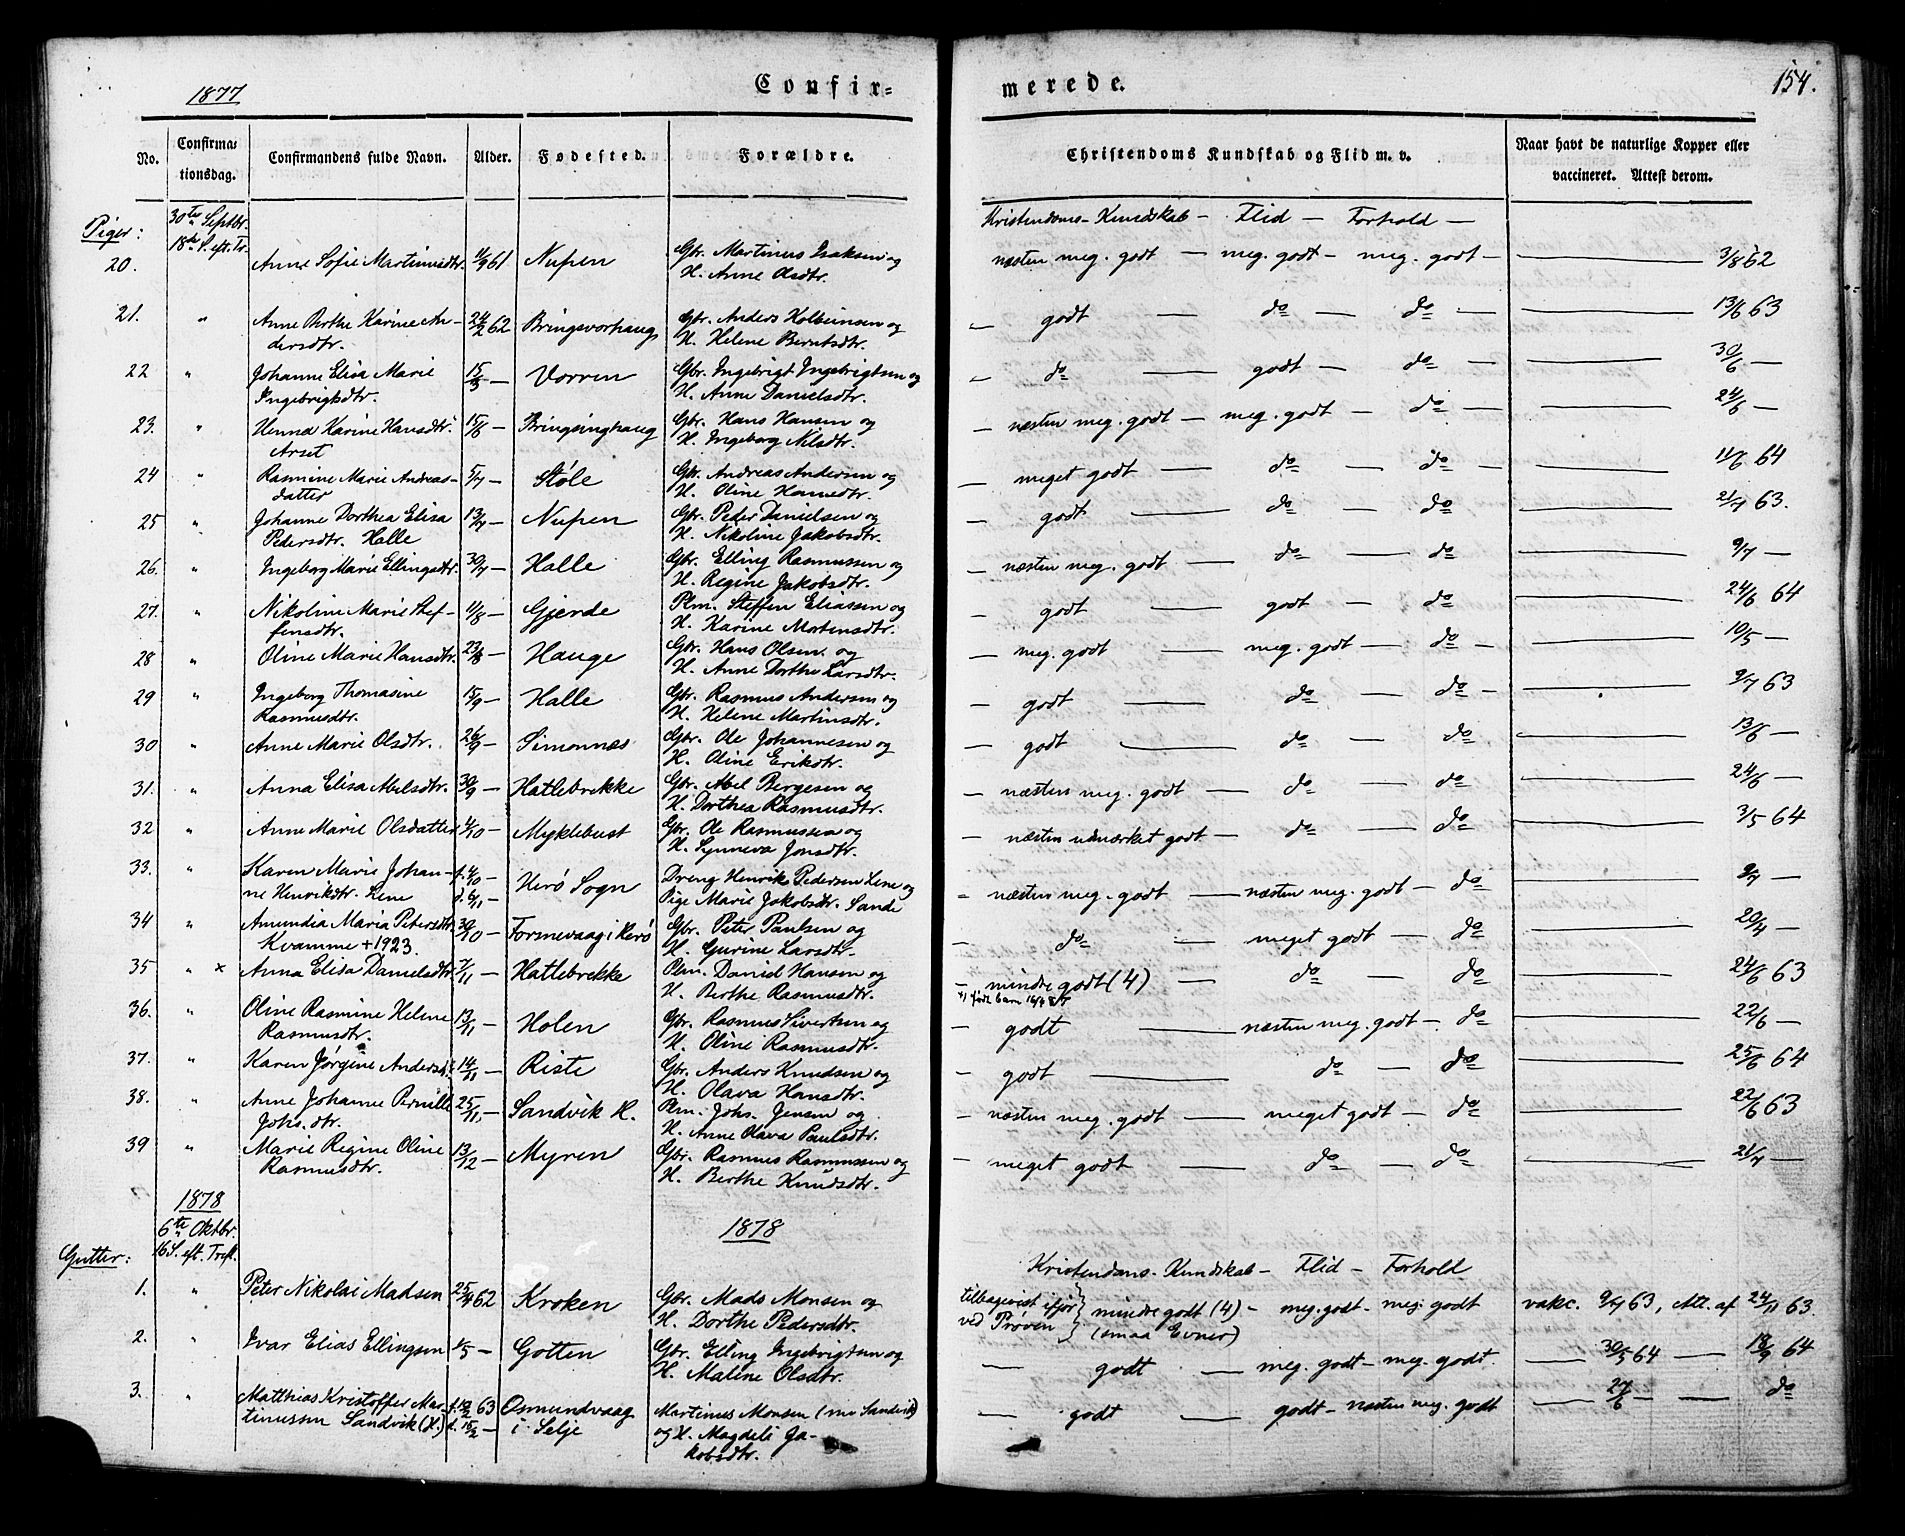 1877
Confir-
merede.
154.
No.
Confirma-
tionsdag.
Confirmandens fulde Navn.
Alder.
Fødested.
Forældre.
Christendoms Kundskab og Flid m. v.
Naar havt de naturlige Kopper eller
vaccineret. Attest derom.
Piger:
30te Septbr.
18de S. eft. Tr.
Kristendoms-Kundskab - Flid - Forhold -
20. Anne Sofie Martinusdtr. 11/9 61 Nupen Gbr. Martinus Isaksen og
H. Anne Olsdtr.
næsten meg. godt - meg. godt - meg. godt - 3/8 62
21. " Anne Birthe Karine An-
dersdtr. 24/2 62 Bringsvorhaug Gbr. Anders Kolbeinsen og
H. Helene Berntsdtr.
- godt - do - do - 13/6 63
22 " Johanne Elisa Marie
Ingebrigtsdtr. 15/5 - Vorren Gbr. Ingebrigt Ingebrigtsen og
H. Anne Danielsdtr.
- do - godt - do - 30/6 -
23. " Henna Karine Hansdtr.
Arset 15/6 - Bringsinghaug Gbr. Hans Hansen og
H. Ingeborg Nilsdtr.
- næsten meg. godt - meg. godt - do - 24/6 -
24 " Rasmine Marie Andreas-
datter 5/7 - Støle Gbr. Andreas Andersen og
H. Oline Hansdtr.
- meget godt - do - do - 11/6 64
25 " Johanne Dorthea Elisa
Pedersdtr. Halle 13/7 - Nupen Gbr. Peder Danielsen og
H. Nikoline Jakobsdtr.
- godt - do - do - 21/7 63.
26. " Ingeborg Marie Ellingsdtr. 30/7 - Halle Gbr. Elling Rasmussen og
H. Regine Jakobsdtr.
- næsten meg. godt - do - do - 9/7 -
27. " Nikoline Marie Stef-
fensdtr. 11/8 - Gjerde Plm. Steffen Eliassen og
H. Karine Mortensdtr.
- godt - godt - do - 24/6 64
28 " Oline Marie Hansdtr. 23/8 - Hauge Gbr. Hans Olsen og
H. Anne Dorthe Larsdtr.
- meg. godt - meg. godt - do - 10/5 -
29 " Ingeborg Thomasine
Rasmusdtr. 15/9 - Halle Gbr. Rasmus Andersen og
H. Helene Martinsdtr.
- godt - do - do - 9/7 63
30 " Anne Marie Olsdtr. 26/9 - Simonnæs Gbr. Ole Johannesen og
H. Oline Erikdtr.
- godt - do - do - 13/6 -
31. " Anna Elisa Abelsdtr. 30/9 - Hatlebrekke Gbr. Abel Børgesen og
H. Dorthea Rasmusdtr.
- næsten meg. godt - do - do - 24/6 -
32 " Anne Marie Olsdatter 4/10 - Myklebust Gbr. Ole Rasmussen og
H. Synneva Jonsdtr.
- næsten udmærket godt - do - do - 3/5 64
33. " Karen Marie Johan-
ne Henriksdtr. Lene f. 4/10 -
d. 6/11 - Herø Sogn Dreng Henrik Pedersen Lene og
Pige Marie Jakobsdtr. Sande
- næsten meg. godt - næsten meg. godt - do - 9/7 -
34 " Amundia Maria Petersdtr.
Kvamme + 1923. 30/10 - Formevaag i Herø Gbr. Peter Paulsen og
H. Gurine Larsdtr.
- do - meget godt - do - 20/4 -
35 " x Anna Elisa Danielsdtr. 7/11 - Hatlebrekke Plm. Daniel Hansen og
H. Berthe Rasmusdtr.
- mindre godt (4) - do - do - 24/6 63
36. " Oline Rasmine Helene
Rasmusdtr. 13/11 - Holen Gbr. Rasmus Sivertsen og
H. Oline Rasmusdtr.
- godt - næsten meg. godt - do - 22/6 -
37. " Karen Jørgine Andersd. 14/11 - Riste Gbr. Anders Knudsen og
H. Olava Hansdtr.
- godt - do - do - 25/6 64
38. " Anne Johanne Pernille
Johs. dtr. 25/11 - Sandvik H. Plm. Johs. Jensen og
H. Anne Olava Paulsdtr.
- næsten meg. godt - meget godt - do - 22/6 63
39 " Marie Regine Oline
Rasmusdtr. 13/12 - Myren Gbr. Rasmus Rasmussen og
H. Berthe Knudsdtr.
- meget godt - do - do - 21/7 -
1878
6te Oktbr.
16 S. eft. Tref.
1878
Gutter:
Kristendoms-Kundskab - Flid - Forhold
1. " Peter Nikolai Madsen 25/4 62 Kroken Gbr. Mads Monsen og
H. Dorthe Pedersdtr.
tilbagevist ifjor
ved Prøven
mindre godt (4) - meg. godt - meg. godt
(smaa Evner)
vakc. 9/7 63, Att. af 24/11 63.
2. " Ivar Elias Ellingsen 1/5 - Gotten Gbr. Elling Ingebrigtsen og
H. Maline Olsdtr.
- godt - meg. godt - meg. godt. - 30/5 64 - 18/9 64
3. " Matthias Kristoffer Mar-
tinussen Sandvik (H.) f. 12/2 63
d. 15/2 - Osmundvaag
i Selje Martinus Monsen (nu Sandvik)
og H. Magdeli Ja-
kobsdtr.
- godt - godt - næsten meg. godt - 27/6 - do